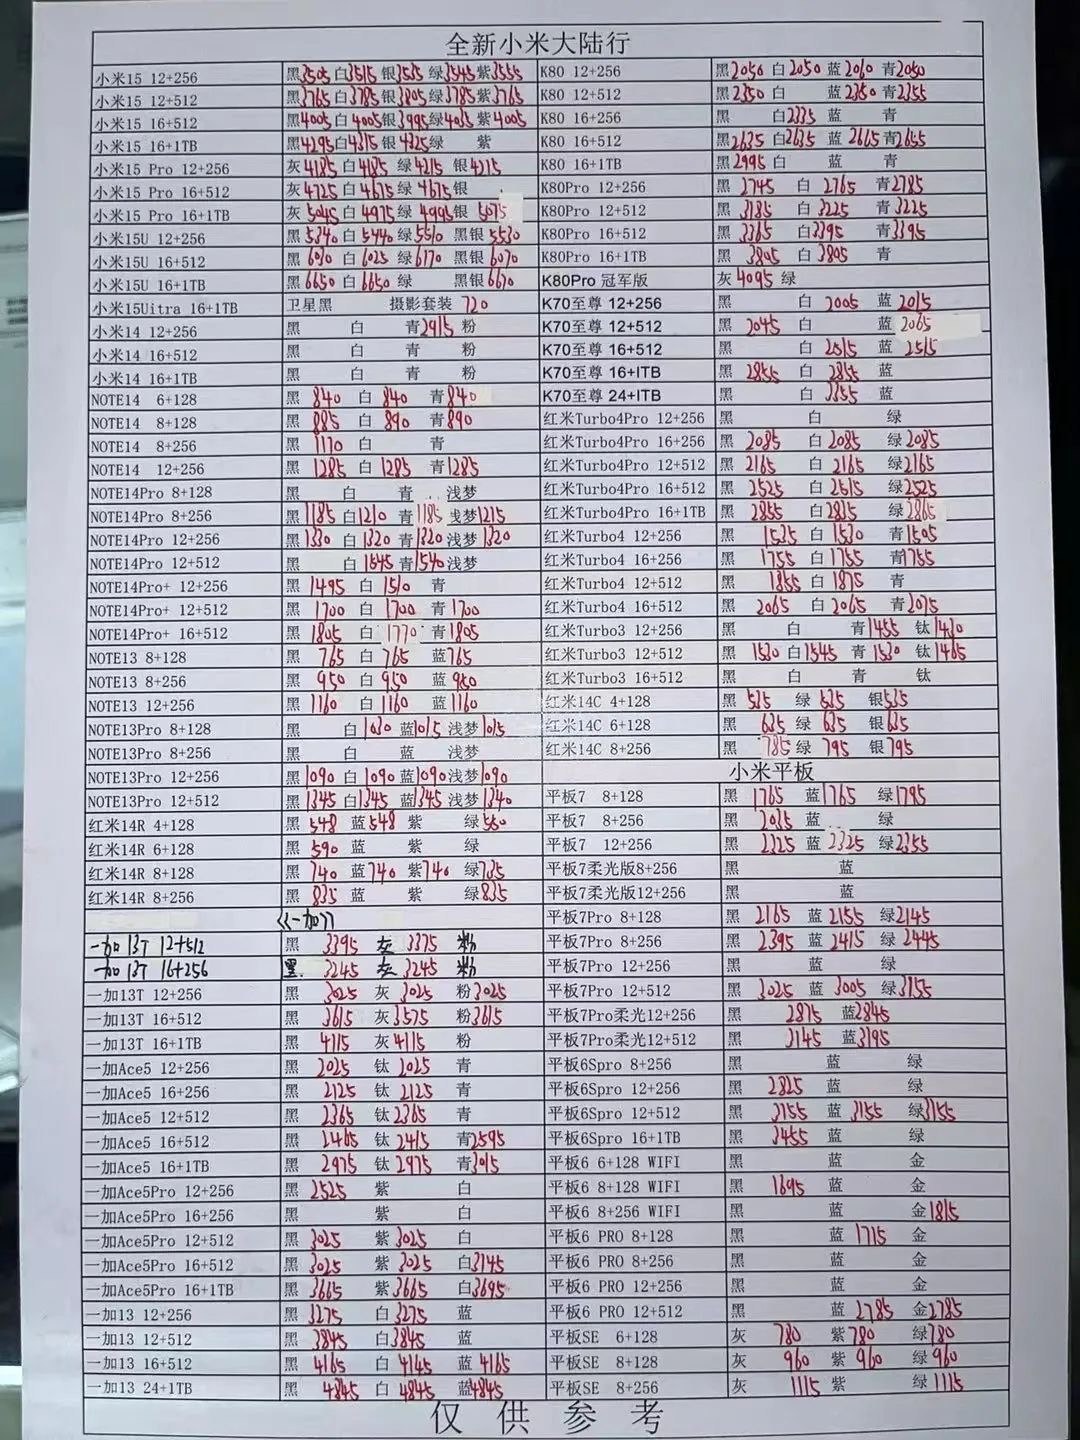 全新小米大陆行
小米15 12+256 黑3505 白3515 银3535 绿3545 紫3555 K80 12+256 黑2050 白2050 蓝2060 青2050
小米15 12+512 黑3765 白3785 银3805 绿3785 紫3765 K80 12+512 黑2350 白 蓝2350 青2355
小米15 16+512 黑4005 白4005 银3995 绿4035 紫4005 K80 16+256 黑 白2335 蓝 青
小米15 16+1TB 黑4295 白4315 银4325 绿 紫 K80 16+512 黑2635 白2635 蓝2665 青2655
小米15 Pro 12+256 灰4185 白4185 绿4215 银4215 K80 16+1TB 黑2995 白 蓝 青
小米15 Pro 16+512 灰4725 白4675 绿4675 银 K80Pro 12+256 黑2745 白2765 青2785
小米15 Pro 16+1TB 灰5045 白4975 绿4995 银5075 K80Pro 12+512 黑3185 白3225 青3225
小米15U 12+256 黑5340 白5440 绿5510 黑银5530 K80Pro 16+512 黑3365 白3395 青3395
小米15U 16+512 黑6030 白6025 绿6170 黑银6070 K80Pro 16+1TB 黑3805 白3805 青
小米15U 16+1TB 黑6650 白6650 绿 黑银6670 K80Pro 冠军版 灰4095 绿
小米15Uitra 16+1TB 卫星黑 摄影套装720 K70至尊 12+256 黑 白2005 蓝2015
小米14 12+256 黑 白 青2915 粉 K70至尊 12+512 黑2045 白 蓝2065
小米14 16+512 黑 白 青 粉 K70至尊 16+512 黑 白2515 蓝2515
小米14 16+1TB 黑 白 青 粉 K70至尊 16+ITB 黑2855 白2855 蓝
NOTE14 6+128 黑840 白840 青840 K70至尊 24+ITB 黑 白3355 蓝
NOTE14 8+128 黑885 白890 青890 红米Turbo4Pro 12+256 黑 白 绿
NOTE14 8+256 黑1170 白 青 红米Turbo4Pro 16+256 黑2085 白2085 绿2085
NOTE14 12+256 黑1285 白1285 青1285 红米Turbo4Pro 12+512 黑2165 白2165 绿2165
NOTE14Pro 8+128 黑 白 青 浅梦 红米Turbo4Pro 16+512 黑2525 白2515 绿2525
NOTE14Pro 8+256 黑1185 白1210 青1185 浅梦1215 红米Turbo4Pro 16+1TB 黑2855 白2835 绿2865
NOTE14Pro 12+256 黑1330 白1320 青1320 浅梦1320 红米Turbo4 12+256 黑1535 白1530 青1505
NOTE14Pro 12+512 黑 白1545 青1540 浅梦 红米Turbo4 16+256 黑1755 白1755 青1755
NOTE14Pro+ 12+256 黑1495 白1510 青 红米Turbo4 12+512 黑1855 白1875 青
NOTE14Pro+ 12+512 黑1700 白1700 青1700 红米Turbo4 16+512 黑2065 白2065 青2075
NOTE14Pro+ 16+512 黑1805 白1770 青1805 红米Turbo3 12+256 黑 白 青1455 钛1430
NOTE13 8+128 黑765 白765 蓝765 红米Turbo3 12+512 黑1530 白1545 青1530 钛1465
NOTE13 8+256 黑950 白950 蓝950 红米Turbo3 16+512 黑 白 青 钛
NOTE13 12+256 黑1160 白1160 蓝1160 红米14C 4+128 黑535 绿535 银535
NOTE13Pro 8+128 黑 白1030 蓝1015 浅梦1015 红米14C 6+128 黑635 绿635 银635
NOTE13Pro 8+256 黑 白 蓝 浅梦 红米14C 8+256 黑785 绿795 银795
NOTE13Pro 12+256 黑1090 白1090 蓝1090 浅梦1090 小米平板
NOTE13Pro 12+512 黑1345 白1345 蓝1345 浅梦1340 平板7 8+128 黑1765 蓝1765 绿1795
红米14R 4+128 黑548 蓝548 紫 绿550 平板7 8+256 黑2035 蓝 绿
红米14R 6+128 黑590 蓝 紫 绿 平板7 12+256 黑2325 蓝2325 绿2355
红米14R 8+128 黑740 蓝740 紫740 绿735 平板7柔光版8+256 黑 蓝
红米14R 8+256 黑835 蓝 紫 绿835 平板7柔光版12+256 黑 蓝
《一加》 平板7Pro 8+128 黑2165 蓝2155 绿2145
一加13T 12+512 黑3395 灰3375 粉 平板7Pro 8+256 黑2395 蓝2415 绿2445
一加13T 16+256 黑3245 灰3245 粉 平板7Pro 12+256 黑 蓝 绿
一加13T 12+256 黑3025 灰3025 粉3025 平板7Pro 12+512 黑3025 蓝3005 绿3155
一加13T 16+512 黑3615 灰3575 粉3615 平板7Pro柔光12+256 黑2875 蓝2845
一加13T 16+1TB 黑4115 灰4115 粉 平板7Pro柔光12+512 黑3145 蓝3195
一加Ace5 12+256 黑2025 钛2025 青 平板6Spro 8+256 黑 蓝 绿
一加Ace5 16+256 黑2125 钛2125 青 平板6Spro 12+256 黑2825 蓝 绿
一加Ace5 12+512 黑2365 钛2365 青 平板6Spro 12+512 黑3155 蓝3155 绿3155
一加Ace5 16+512 黑2465 钛2415 青2595 平板6Spro 16+1TB 黑3455 蓝 绿
一加Ace5 16+1TB 黑2975 钛2975 青3015 平板6 6+128 WIFI 黑 蓝 金
一加Ace5Pro 12+256 黑2525 紫 白 平板6 8+128 WIFI 黑1695 蓝 金
一加Ace5Pro 16+256 黑 紫 白 平板6 8+256 WIFI 黑 蓝 金1815
一加Ace5Pro 12+512 黑3025 紫3025 白 平板6 PRO 8+128 黑 蓝1715 金
一加Ace5Pro 16+512 黑3025 紫3025 白3145 平板6 PRO 8+256 黑 蓝 金
一加Ace5Pro 16+1TB 黑3665 紫3665 白3695 平板6 PRO 12+256 黑 蓝 金
一加13 12+256 黑3275 白3275 蓝 平板6 PRO 12+512 黑 蓝2785 金2785
一加13 12+512 黑3845 白3845 蓝 平板SE 6+128 灰780 紫780 绿780
一加13 16+512 黑4165 白4145 蓝4165 平板SE 8+128 灰960 紫960 绿960
一加13 24+1TB 黑4845 白4845 蓝4845 平板SE 8+256 灰1115 紫 绿1115
仅供参考